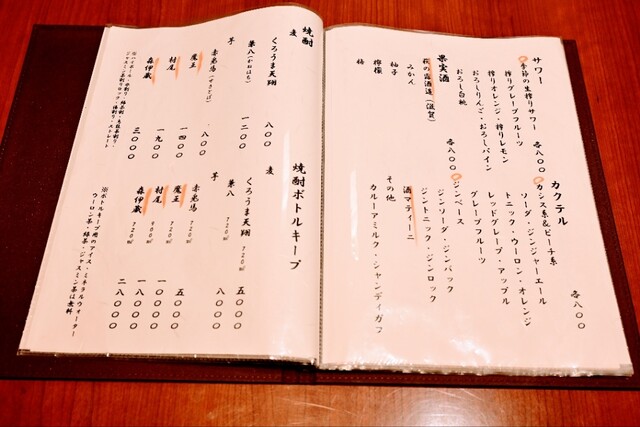 サワー 各八〇〇
季節の生搾りサワー
搾りグレープフルーツ
搾りオレンジ・搾りレモン
おろしりんご・おろしパイン
おろし白桃
果実酒 各八〇〇
萩の露酒造(滋賀)
みかん
柚子
檸檬
梅
カクテル 各八〇〇
カシス系&ピーチ系
ソーダ・ジンジャーエール
トニック・ウーロン・オレンジ
レッドグレープ・アップル
グレープフルーツ
ジンベース
ジンソーダ・ジンバック
ジントニック・ジンロック
酒マティーニ
その他
カルーアミルク・シャンディガフ
焼酎
麦
くろうま天翔 八〇〇
兼八(かねはち) 一二〇〇
芋
赤兎馬(せきとば) 八〇〇
魔王 一四〇〇
村尾 一九〇〇
森伊蔵 三〇〇〇
焼酎ボトルキープ
麦
くろうま天翔 720ml 五〇〇〇
兼八 720ml 八〇〇〇
芋
赤兎馬 720ml 五〇〇〇
魔王 720ml 一〇〇〇〇
村尾 900ml 一八〇〇〇
森伊蔵 720ml 二八〇〇〇
※ボトルキープ用のアイス・ミネラルウォーター
ウーロン茶・緑茶・ジャスミン茶は無料